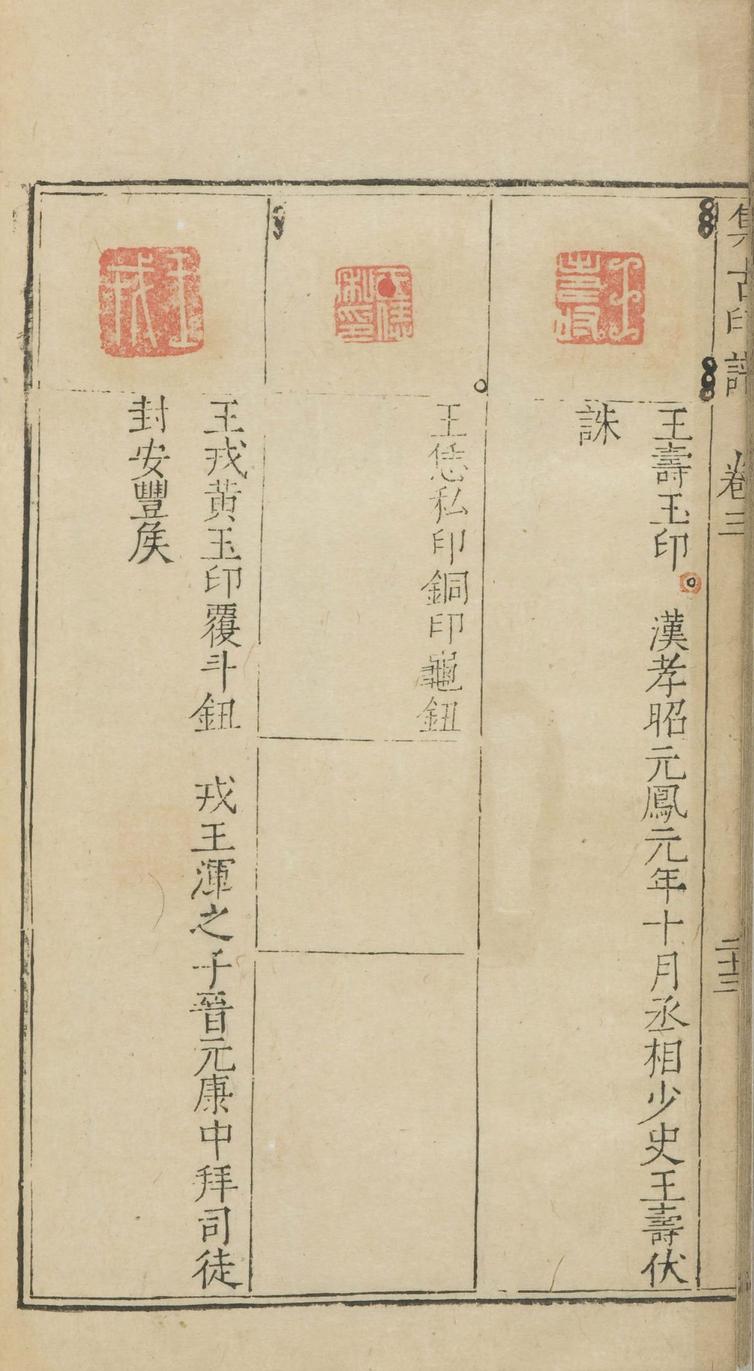 集古印譜 卷三 二十三
王壽玉印 漢孝昭元鳳元年十月丞相少史王壽伏
誅
王恁私印銅印龜鈕
王戎黃玉印覆斗鈕 戎王渾之子晉元康中拜司徒
封安豐侯
王戎